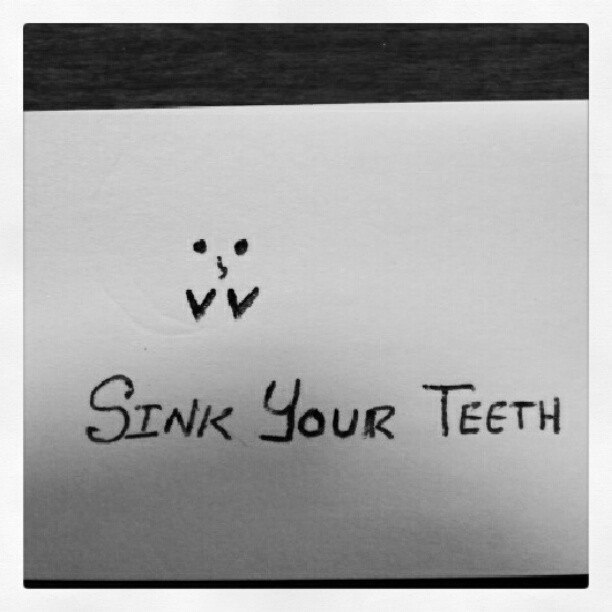 SINK YOUR TEETH